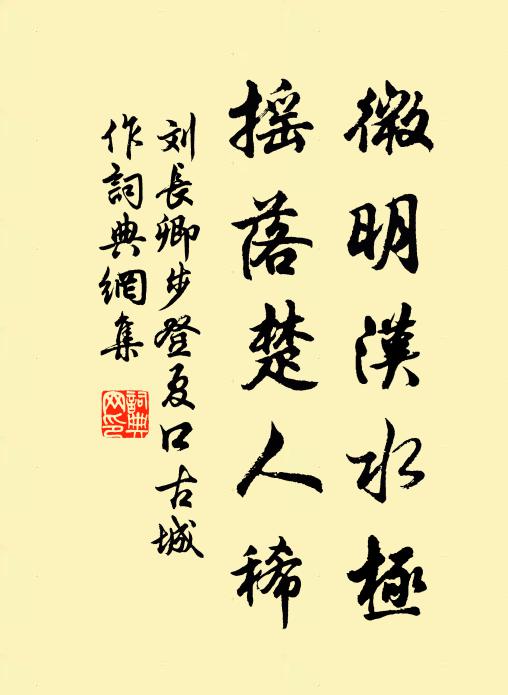 微明漢水極
搖落楚人稀
刘長卿步登夏口古城
作詞典網集
詞典
网印